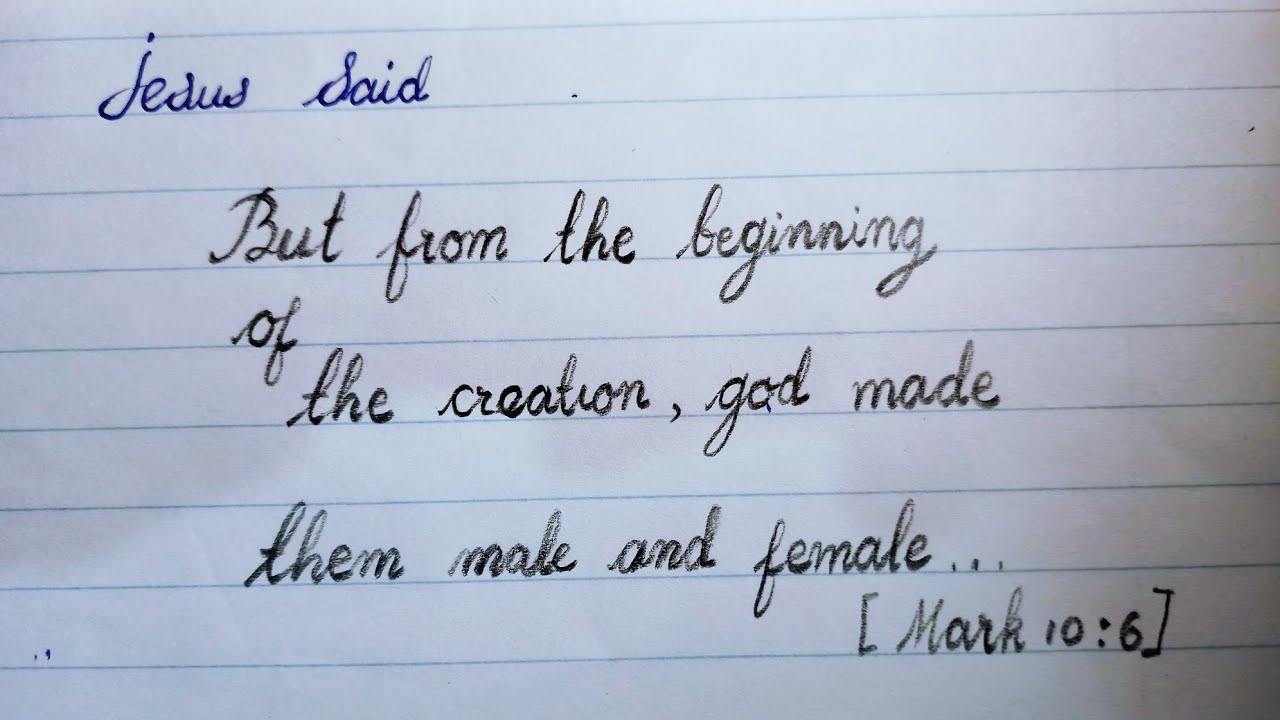 Jesus said
But from the beginning
of
the creation, god made
them male and female...
[Mark 10:6]